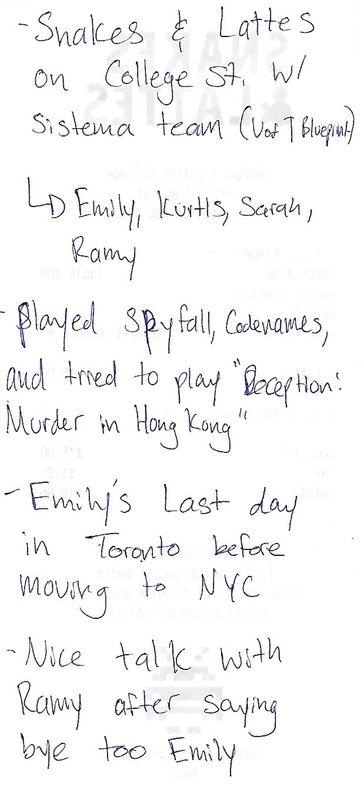 - Snakes & Lattes
on College St. w/
Sistema team (UofT Blueprint)
↳ Emily, Kurtis, Sarah,
Ramy
- Played Spyfall, Codenames,
and tried to play "Deception:
Murder in Hong Kong"
- Emily's Last day
in Toronto before
moving to NYC
- Nice talk with
Ramy after saying
bye too Emily